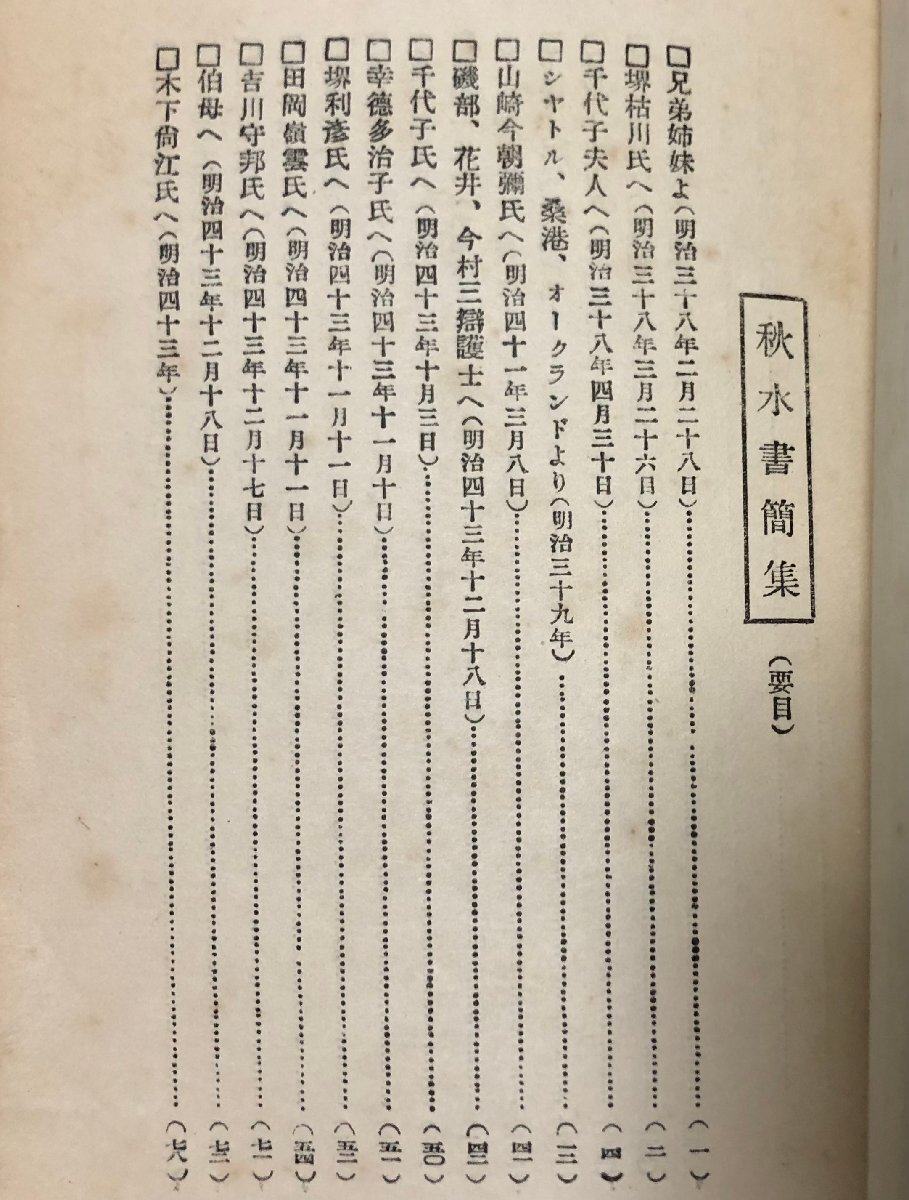 秋水書簡集
（要目）
□兄弟姉妹よ（明治三十八年二月二十八日）……（一）
□堺枯川氏へ（明治三十八年三月二十六日）……（二）
□千代子夫人へ（明治三十八年四月三十日）……（四）
□シヤトル、桑港、オークランドより（明治三十九年）……（一三）
□山崎今朝彌氏へ（明治四十一年三月八日）……（四一）
□磯部、花井、今村三辯護士へ（明治四十三年十二月十八日）……（四三）
□千代子氏へ（明治四十三年十月三日）……（五〇）
□幸德多治子氏へ（明治四十三年十一月十日）……（五一）
□堺利彥氏へ（明治四十三年十一月十一日）……（五三）
□田岡嶺雲氏へ（明治四十三年十一月十一日）……（五四）
□吉川守邦氏へ（明治四十三年十二月十七日）……（七一）
□伯母へ（明治四十三年十二月十八日）……（七三）
□木下尙江氏へ（明治四十三年）……（七八）